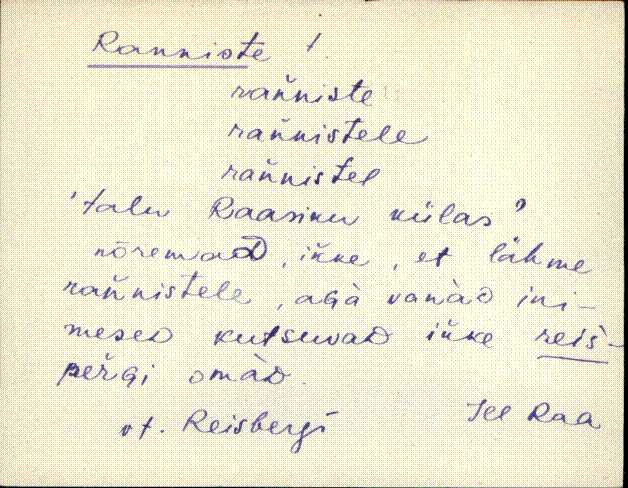 Ranniste t.
rañniste
rañnistele
rañnistel
'talu Raasiku külas'
nõremaD, iƙke, et lähme
rañnistele, aGà vanàD ini-
meseD kutsuvaD iƙke reiš-
peřGi omàD.
vt. Reisbergi Jel Raa